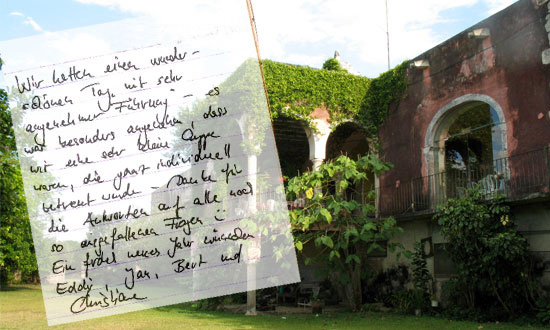 Wir hatten einen wunder-
schönen Tag mit sehr
angenehmer Führung - es
war besonders angenehm, dass
wir eine sehr kleine Gruppe
waren, die ganz individuell
betreut wurde - Danke für
die Antworten auf alle noch
so ausgefallenen Fragen :-
Ein frohes neues Jahr wünschen
Eddy, Jan, Bert und
Christiane